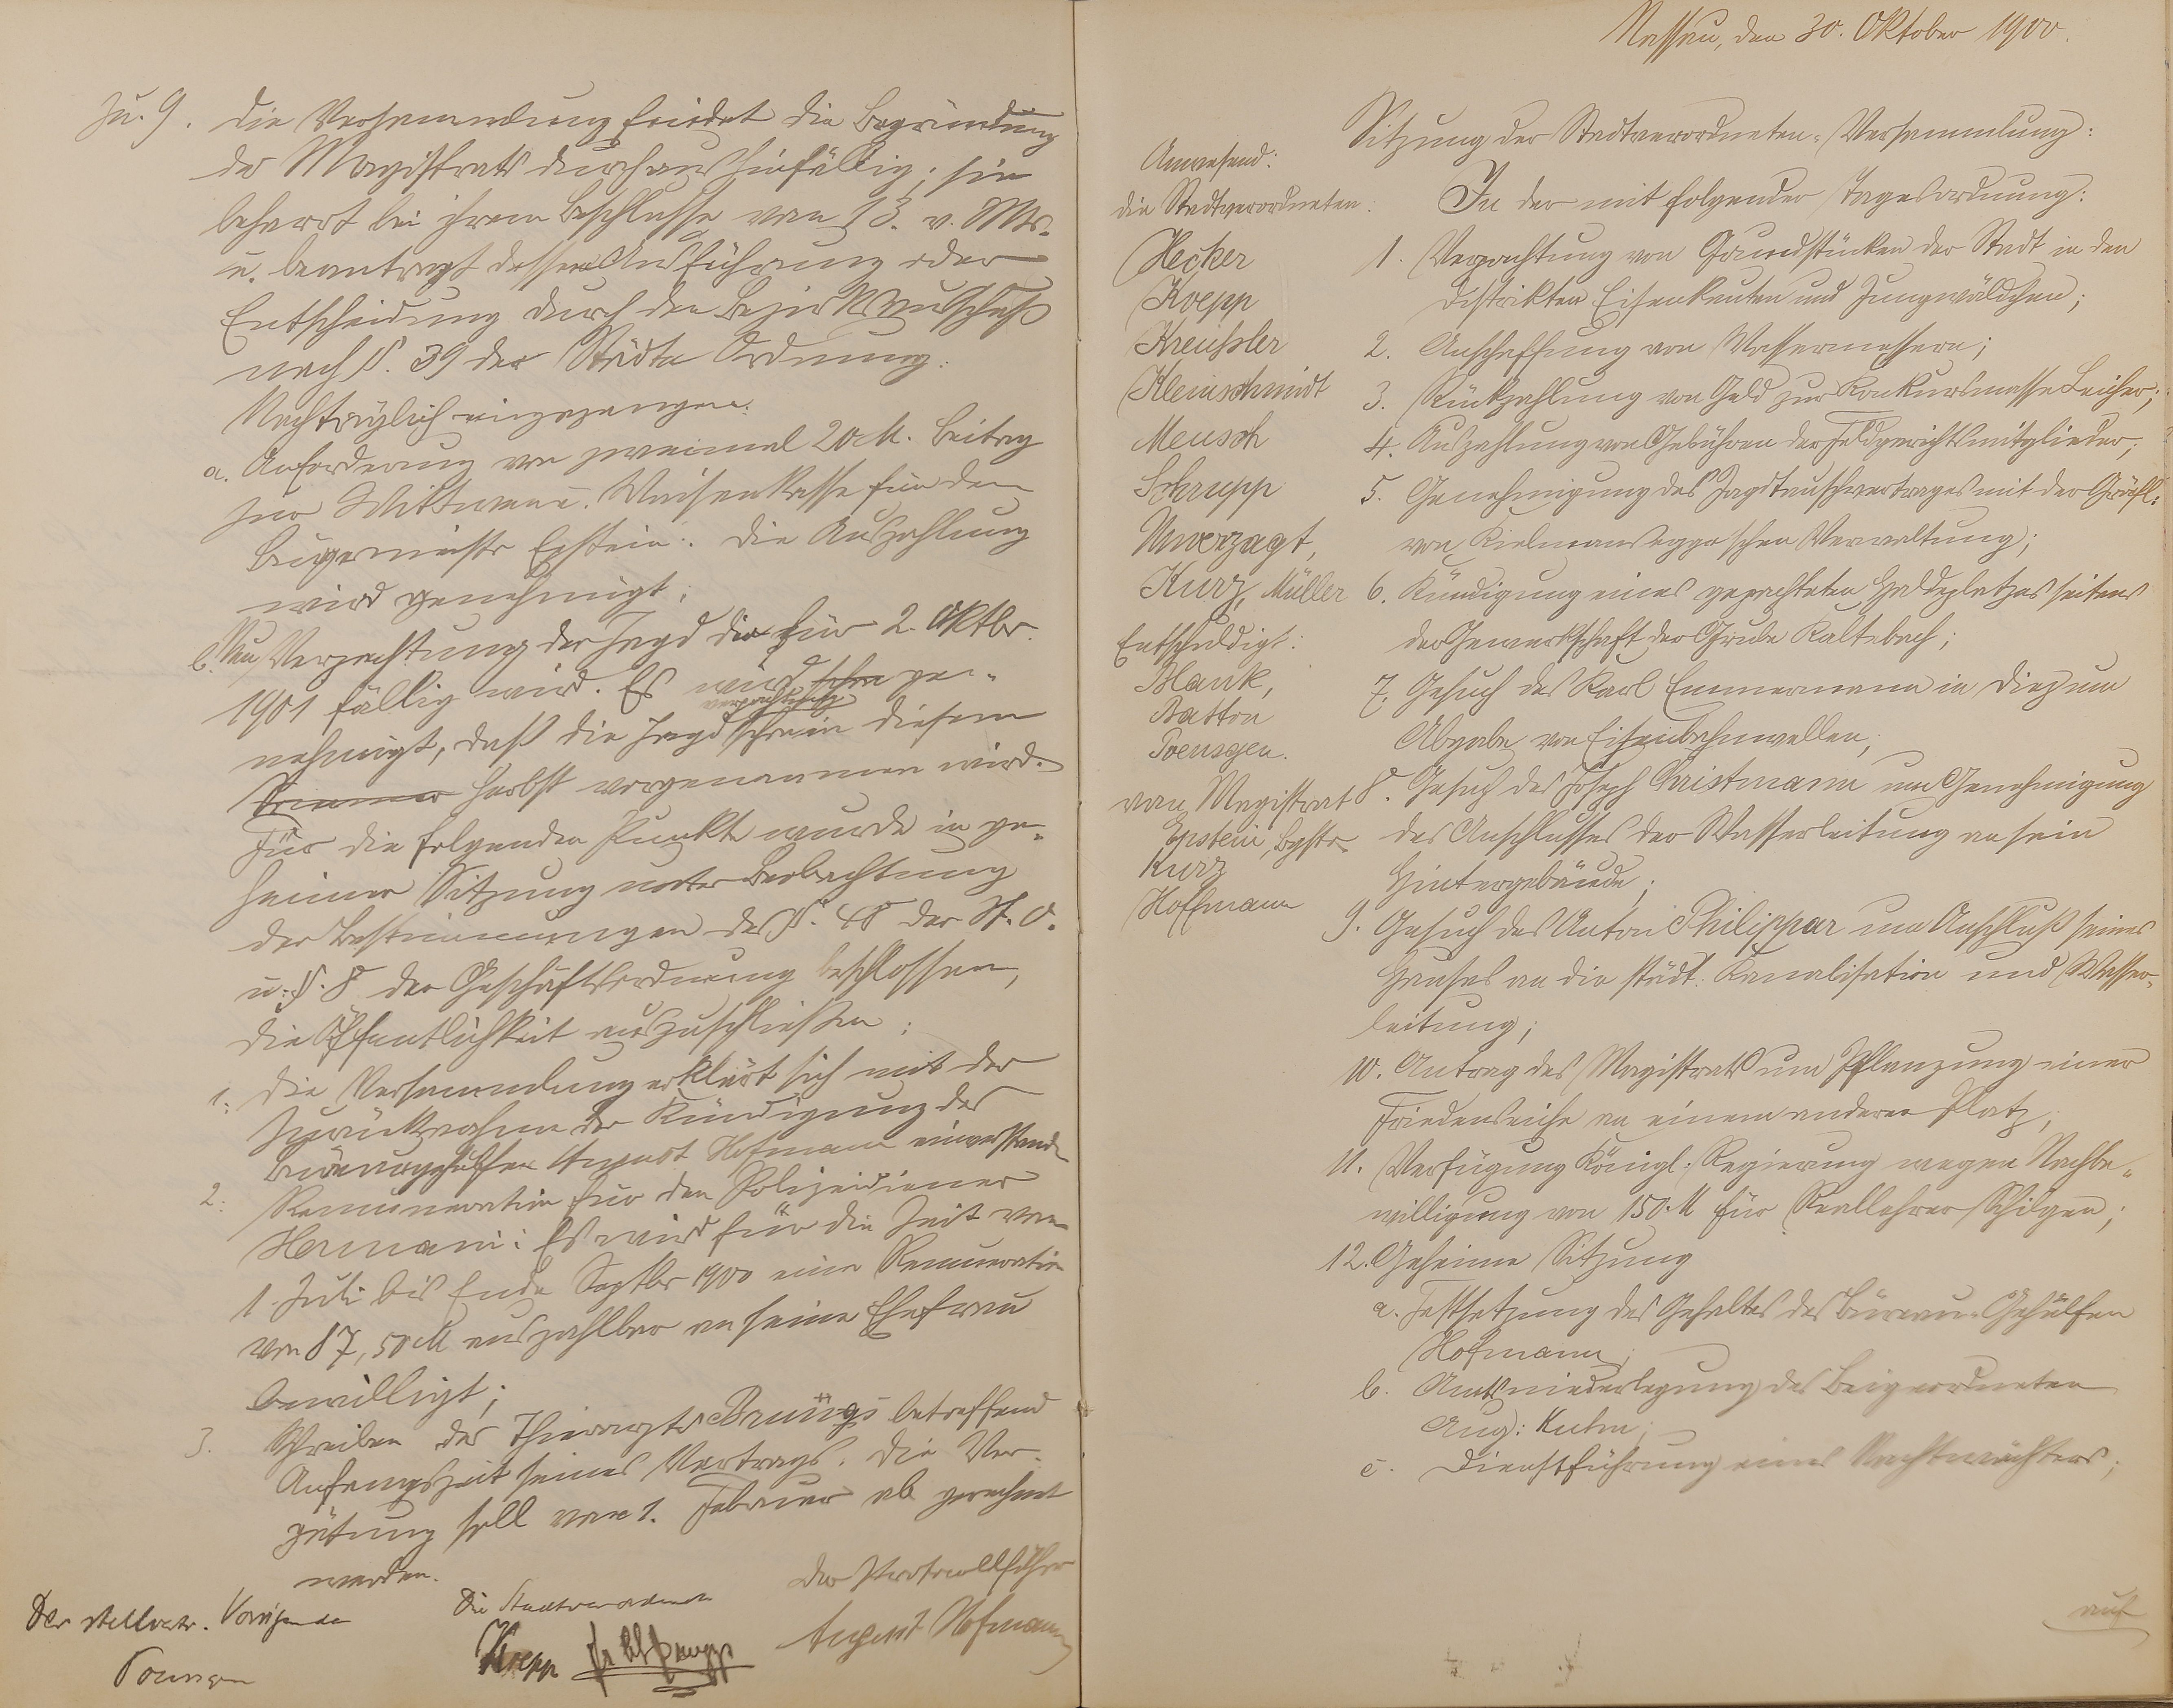 zu. 9. Die Versammlung findet die Begründung
des Magistrats durchaus hinfällig; sie
beharrt bei ihrem Beschlusse vom 13. v. Mts.
u. beantragt dessen Ausführung oder
Entscheidung durch den Bezirksausschuß
nach §. 39 der Städte Ordnung.
Nachträglich eingegangen.
a. Anforderung von zweimal 20 M. Beitrag
zur Wittwen u. Waisenkasse für den
Bürgermeister Epstein: Die Auszahlung
wird genehmigt;
b. Neu Verpachtung der Jagd die für 2. Oktbr.
1901 fällig wird. Es wird schon ge-
nehmigt, daß die Jagdverpachtung schon in diesem
Sommer Herbst vorgenommen wird.
Für die folgenden Punkte wurde in ge-
heimer Sitzung unter Beobachtung
der Bestimmungen des §. 48 der St. O.
u. §. 8 der Geschäftsordnung beschlossen,
die Öffentlichkeit auszuschließen:
1. Die Versammlung erklärt sich mit der
Zurücknahme der Kündigung des
Büreaugehülfen August Hofmann einverstanden
2. Remuneration für den Polizeidiener
Hermani: Es wird für die Zeit vom
1. Juli bis Ende Septbr 1900 eine Remuneration
von 87,50 M auszahlbar an seine Ehefrau
bewilligt;
3. Schreiben des Thierarzts Brüngs betreffend
Anfangszeit seines Vertrags. Die Ver-
gütung soll vom 1. Februar ab gerechnet
werden.
Der stellvertr. Vorsitzende
Die Stadtverordneten
Der Protokollführer
Poensgen
Koepp
August Hofmann
Nassau, den 30. Oktober 1900.
Sitzung der Stadtverordneten-Versammlung:
Anwesend:
die Stadtverordneten:
Hecker
Koepp
Kreußler
Kleinschmidt
Meusch
Schrupp
Unverzagt,
Kurz, Müller
Entschuldigt:
Blank,
Batton
Poensgen.
vom Magistrat
Epstein, Bgstr.
Kurz
Hoffmann
In der mit folgender Tagesordnung:
1. Verpachtung von Grundstücken der Stadt in den
Distrikten Eisenkauten und Jungwäldchen;
2. Anschaffung von Wassermessern;
3. Rückzahlung von Geld zur Konkursmasse Leicher;
4. Auszahlung von Gebühren der Feldgerichtsmitglieder;
5. Genehmigung des Jagdtauschvertrages mit der Gräfl.
von Kielmansegge'schen Verwaltung;
6. Kündigung eines gepachteten Haldeplatzes seitens
der Gewerkschaft der Grube Kaltebach;
7. Gesuch des Karl Emmermann in Diez um
Abgabe von Eisenbahnwellen;
8. Gesuch des Joseph Christmann um Genehmigung
des Anschlusses der Wasserleitung an sein
Hintergebäude;
9. Gesuch des Anton Philippar um Anschluß seines
Hauses an die städt. Kanalisation und Wasser-
leitung;
10. Antrag des Magistrats um Pflanzung einer
Friedenseiche an einem anderen Platz;
11. Verfügung Königl. Regierung wegen Nachbe-
willigung von 150 M für Reallehrer Schilgen;
12. Geheime Sitzung
a. Festsetzung des Gehaltes des Büreau-Gehülfen
Hofmann;
b. Amtsniederlegung des Beigeordneten
Aug: Kuhn;
c. Dienstführung eines Nachtwächters;
auf